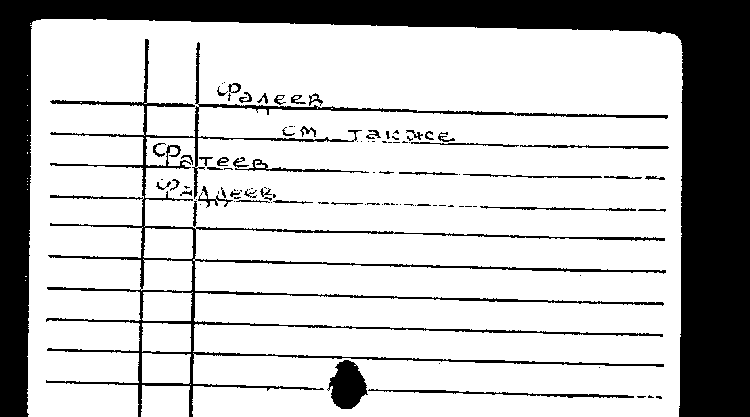 Фадеев
см. также
Фатеев
Фаддеев